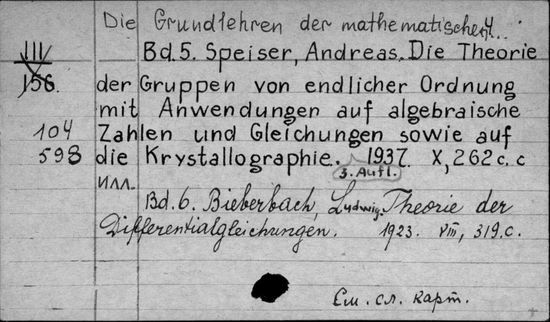 Die Grundlehren der mathematischen..
III Bd.5. Speiser, Andreas. Die Theorie
156. der Gruppen von endlicher Ordnung
mit Anwendungen auf algebraische
104 Zahlen und Gleichungen sowie auf
598 die Krystallographie. 1937. X, 262 c. c
3. Aufl.
илл.
Bd. 6. Bieberbach, Ludwig. Theorie der
Differentialgleichungen. 1923. VIII, 319.c.
См. сл. карт.